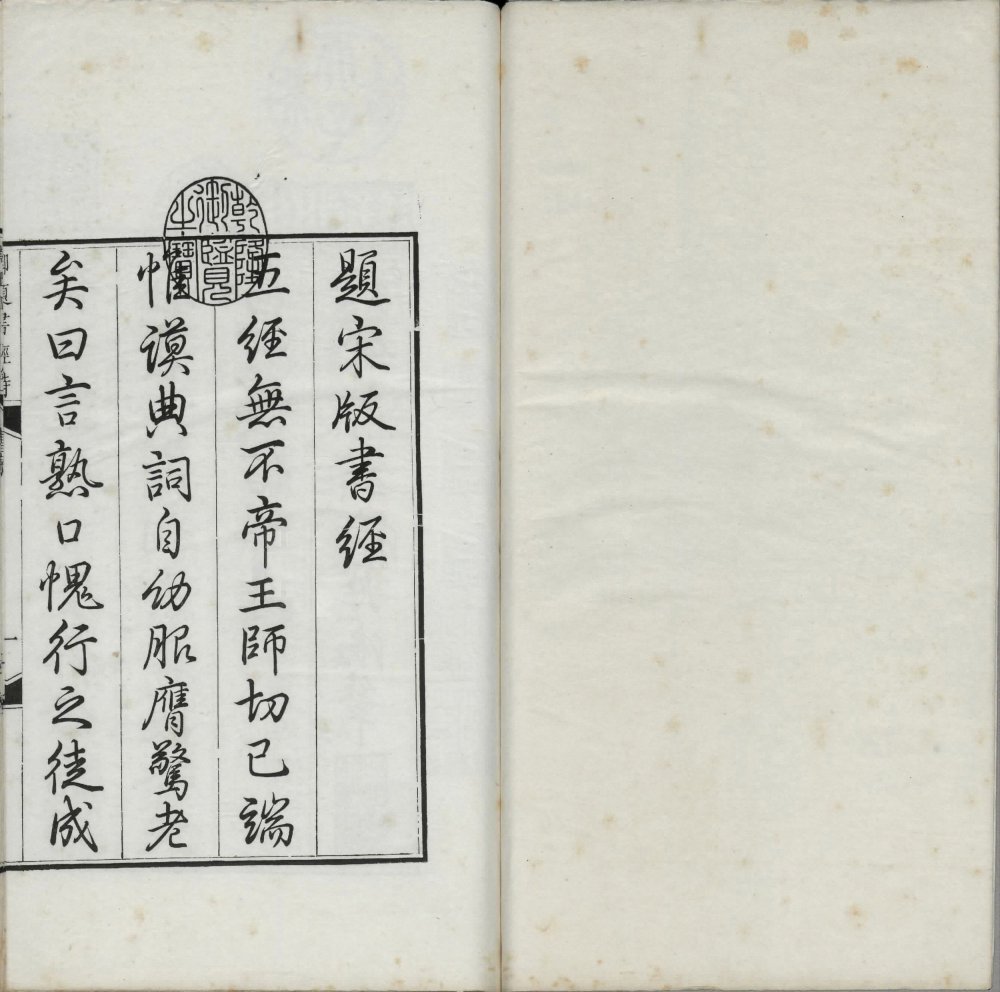 乾隆
御覽
之寶
題宋版書經
五經無不帝王師切已端
惟謨典詞自幼服膺驚老
矣曰言熟口愧行之徒成